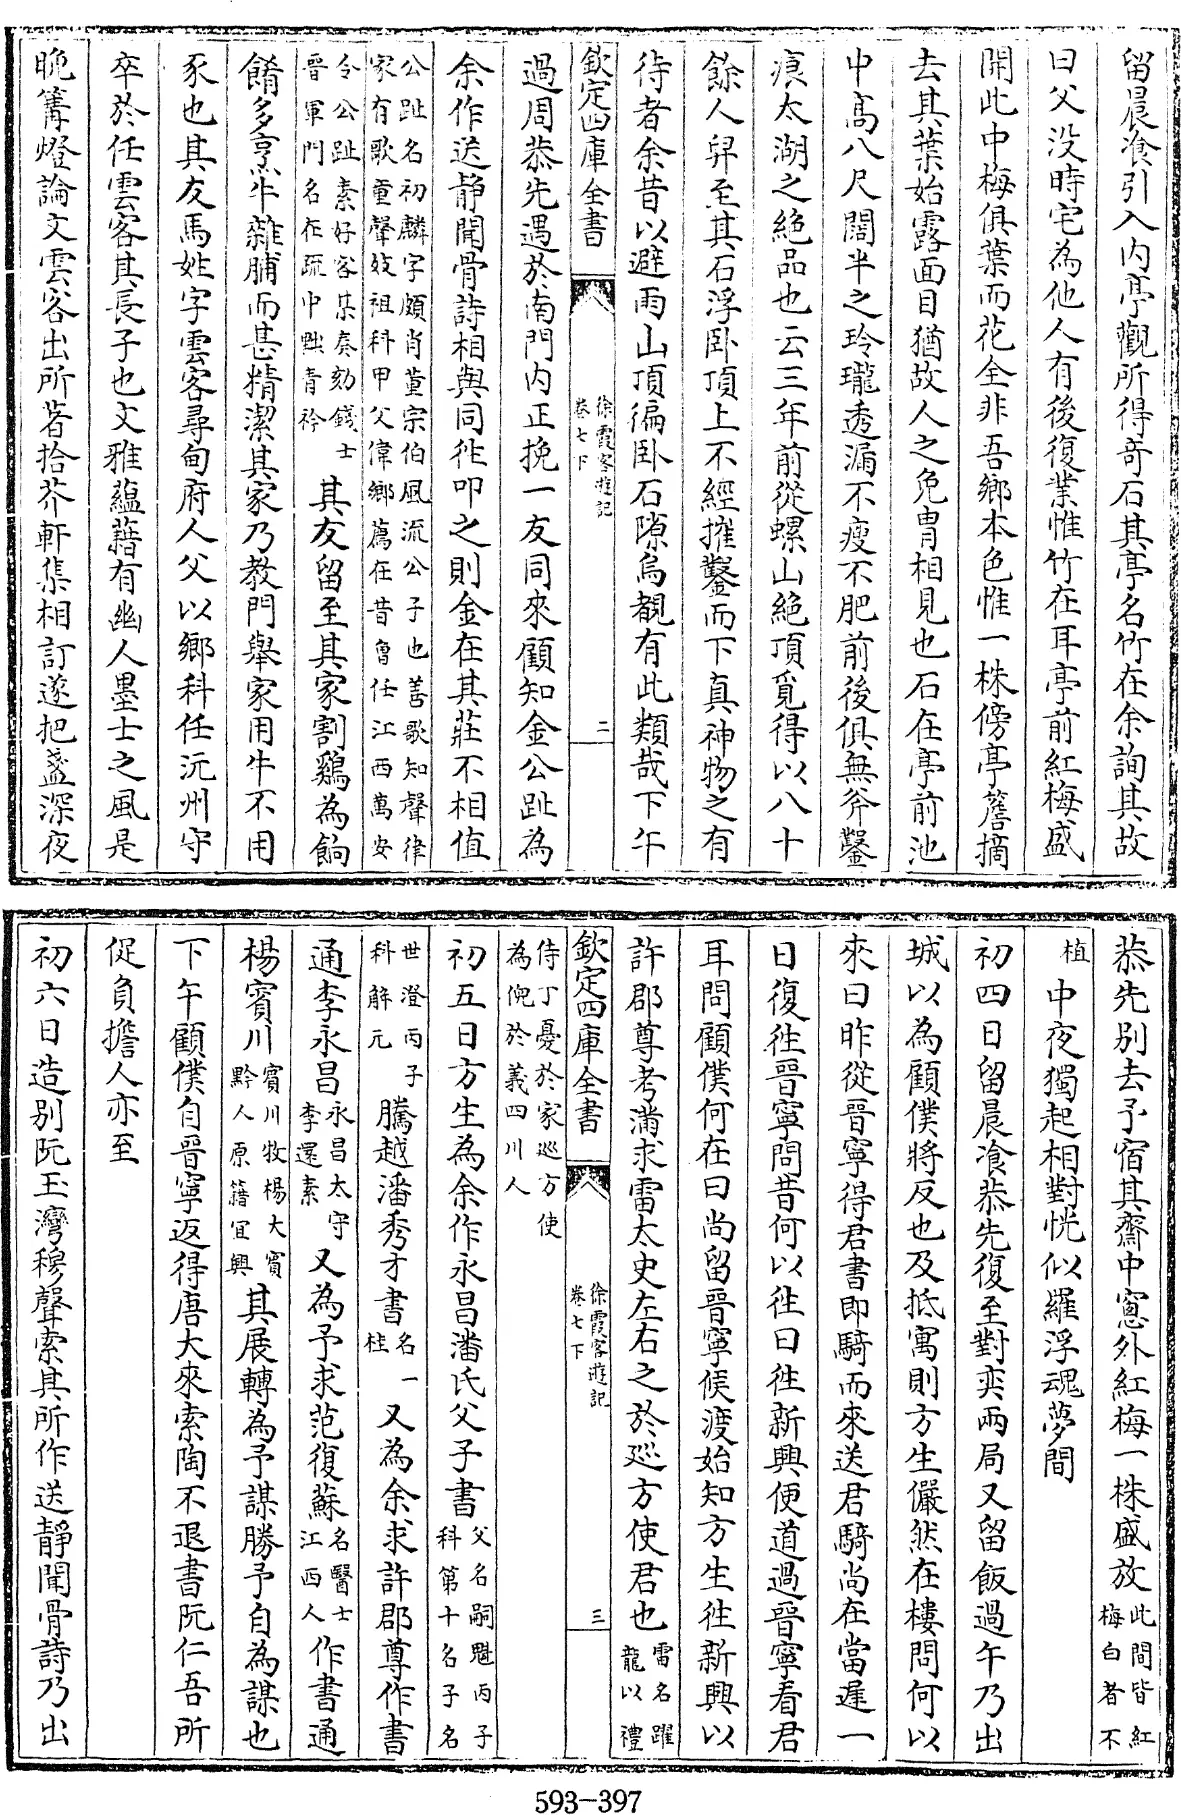 留晨飡引入内亭觀所得奇石其亭名竹在余詢其故
曰父没時宅為他人有後復業惟竹在耳亭前紅梅盛
開此中梅俱葉而花全非吾鄉本色惟一株傍亭簷摘
去其葉始露面目猶故人之免胄相見也石在亭前池
中高八尺闊半之玲瓏透漏不瘦不肥前後俱無斧鑿
痕太湖之絶品也云三年前從螺山絶頂覓得以八十
餘人舁至其石浮卧頂上不經摧鑿而下真神物之有
待者余昔以避雨山頂徧卧石隙烏覩有此類哉下午
欽定四庫全書
徐霞客遊記
卷七下
二
過周恭先遇於南門内正挽一友同來顧知金公趾為
余作送靜聞骨詩相與同徃叩之則金在其莊不相值
公趾名初麟字頗肖董宗伯風流公子也善歌知聲律
家有歌童聲妓祖科甲父偉鄉薦在昔曾任江西萬安
令公趾素好客某奏劾錢士
晉軍門名在疏中黜青衿
其友留至其家割鷄為餉
餚多烹牛雜脯而甚精潔其家乃教門舉家用牛不用
豕也其友馬姓字雲客尋甸府人父以鄉科任沅州守
卒於任雲客其長子也文雅蘊藉有幽人墨士之風是
晩篝燈論文雲客出所著拾芥軒集相訂遂把盞深夜
恭先别去予宿其齋中窻外紅梅一株盛放
此間皆紅
梅白者不
植
中夜獨起相對恍似羅浮魂夢間
初四日留晨飡恭先復至對奕兩局又留飯過午乃出
城以為顧僕將反也及抵寓則方生儼然在樓問何以
來曰昨從晉寧得君書即騎而來送君騎尚在當遲一
日復徃晉寧問昔何以徃曰徃新興便道過晉寧看君
耳問顧僕何在曰尚留晉寧候渡始知方生徃新興以
許郡尊考滿求雷太史左右之於巡方使君也
雷名躍
龍以禮
欽定四庫全書
徐霞客遊記
卷七下
三
侍丁憂於家巡方使
為倪於義四川人
初五日方生為余作永昌潘氏父子書
父名嗣魁丙子
科第十名子名
世澄丙子
科解元
騰越潘秀才書
名一
桂
又為余求許郡尊作書
通李永昌
永昌太守
李還素
又為予求范復蘇
名醫士
江西人
作書通
楊賓川
賓川牧楊大賓
黔人原籍宜興
其展轉為予謀勝予自為謀也
下午顧僕自晉寧返得唐大來索陶不退書阮仁吾所
促負擔人亦至
初六日造别阮玉灣穆聲索其所作送靜聞骨詩乃出
593-397